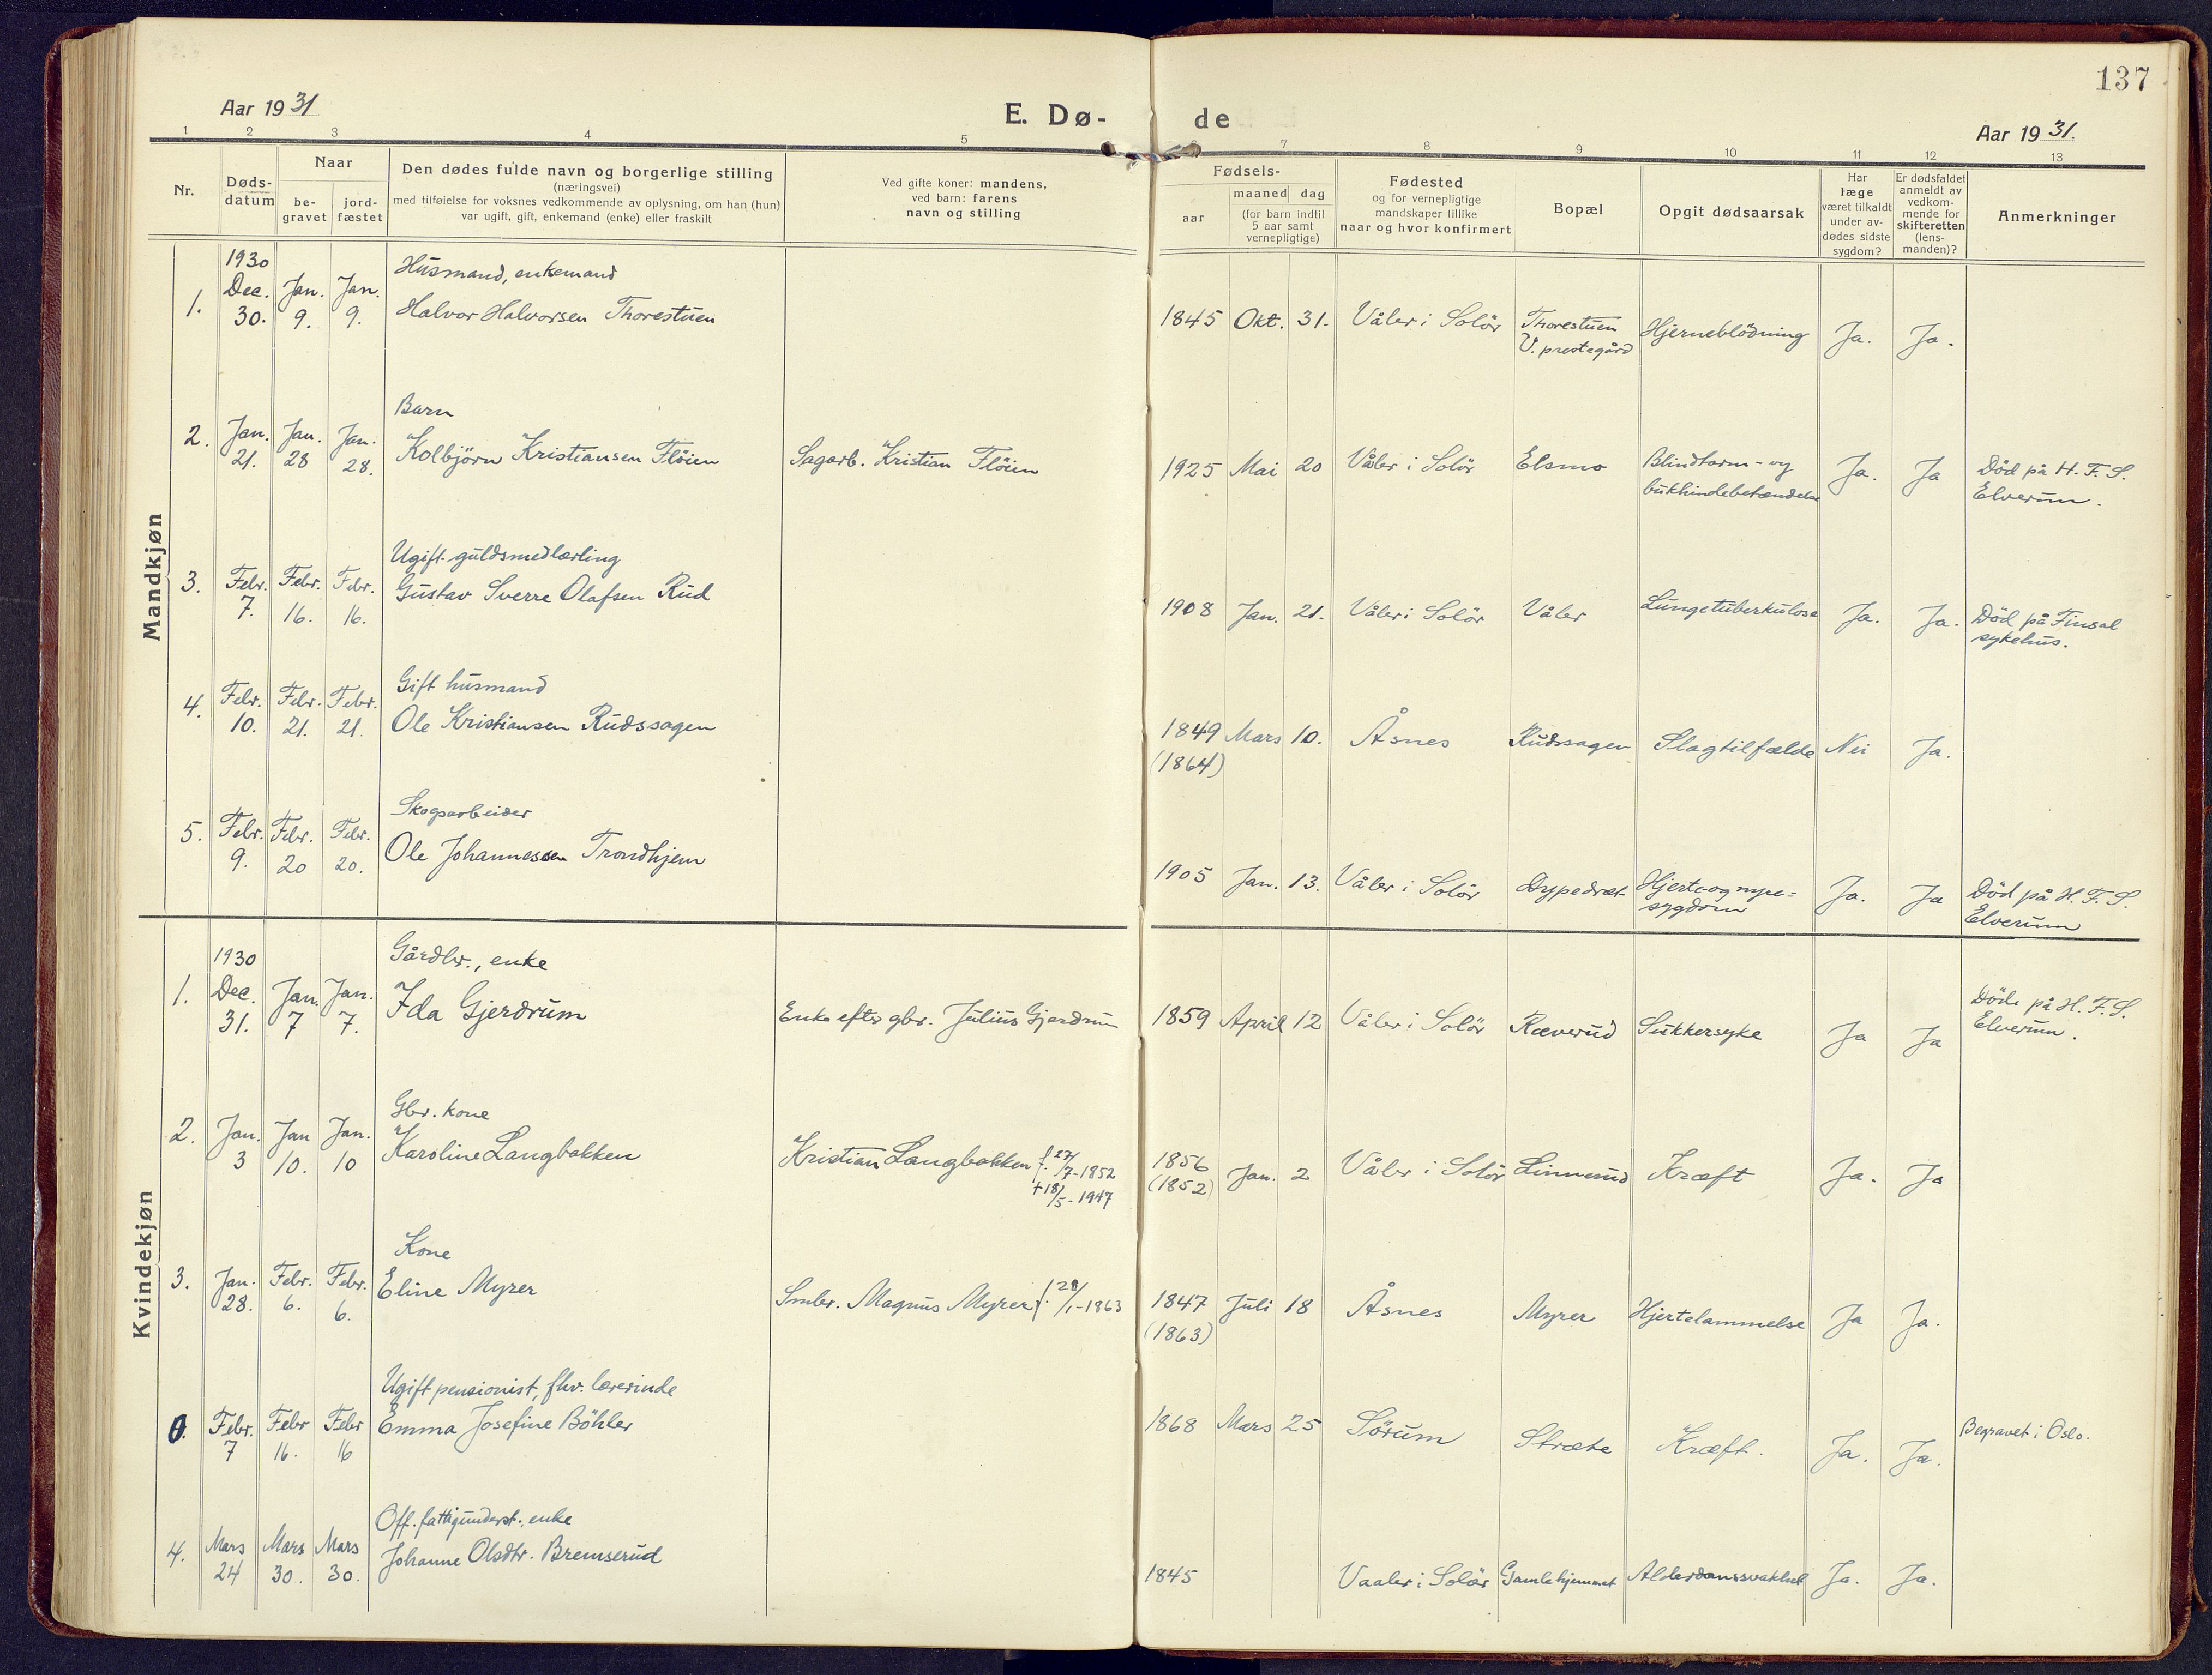 137
Aar 1931
E. Dø-
de
Aar 1931.
1 2 3 4 5 7 8 9 10 11 12 13
Nr.
Døds-
datum
Naar
be-
gravet
jord-
fæstet
Den dødes fulde navn og borgerlige stilling
(næringsvei)
med tilføielse for voksnes vedkommende av oplysning, om han (hun)
var ugift, gift, enkemand (enke) eller fraskilt
Ved gifte koner: mandens,
ved barn: farens
navn og stilling
Fødsels-
aar
maaned dag
(for barn indtil
5 aar samt
vernepligtige)
Fødested
og for vernepligtige
mandskaper tillike
naar og hvor konfirmert
Bopæl
Opgit dødsaarsak
Har
læge
været tilkaldt
under av-
dødes sidste
sygdom?
Er dødsfaldet
anmeldt av
vedkom-
mende for
skifteretten
(lens-
manden)?
Anmerkninger
Mandkjøn
1930 Husmand, enkemand
1. Dec. 30. Jan. 9. Jan. 9. Halvor Halvorsen Thorestuen 1845 Okt. 31. Våler i Solör Thorestuen V. prestegård Hjerneblödning Ja. Ja.
Barn
2. Jan. 21. Jan. 28 Jan. 28. Kolbjörn Kristiansen Flöien Sagarb. Kristian Flöien 1925 Mai 20 Våler i Solör Elsmo Blindtarm- og bukhindebetændelse Ja. Ja Död på H. F. S. Elverum.
Ugift guldsmedlærling
3. Febr. 7. Febr. 16. Febr. 16. Gustav Sverre Olafsen Rud 1908 Jan. 21. Våler i Solör Våler Lungetuberkulose Ja. Ja. Död på Finsal sykehus.
Gift husmand
4. Febr. 10. Febr. 21. Febr. 21. Ole Kristiansen Rudssagen 1849 (1864) Mars 10. Åsnes Rudssagen Slagtilfælde Nei Ja.
Skogsarbeider
5. Febr. 9. Febr. 20 Febr. 20. Ole Johannessen Trondhjem 1905 Jan. 13. Våler i Solör Dypedræt Hjerte- og nyre= sygdom Ja. Ja Död på H. F. S. Elverum
Kvindekjøn
1930 Gårdbr., enke
1. Dec. 31. Jan. 7 Jan. 7. Ida Gjerdrum Enke efter gbr. Julius Gjerdrum 1859 April 12 Våler i Solör Ræverud Sukkersyke Ja Ja Döde på H. F. S. Elverum.
Gbr. kone
2. Jan. 3 Jan 10. Jan. 10 Karoline Langbakken Kristian Langbakken f. 27/7-1852 +18/5-1947 1856 (1852) Jan. 2 Våler i Solör Linnerud Kræft Ja. Ja
Kone
3. Jan. 28. Febr. 6. Febr. 6. Eline Myrer Smbr. Magnus Myrer f. 28/1-1863 1847 (1863) Juli 18 Åsnes Myrer Hjertelammelse Ja Ja.
Ugift pensionist, fhv. lærerinde
0. Febr. 7 Febr 16. Febr 16 Emma Josefine Böhler 1868 Mars 25 Sörum Stræte Kræft. Ja. Ja. Begravet i Oslo.
Off. fattigunderst., enke
4. Mars 24 Mars 30. Mars 30. Johanne Olsdtr. Bremserud 1845 Vaaler i Solör Gamlehjemmet Alderdomssvakhet Ja. Ja.